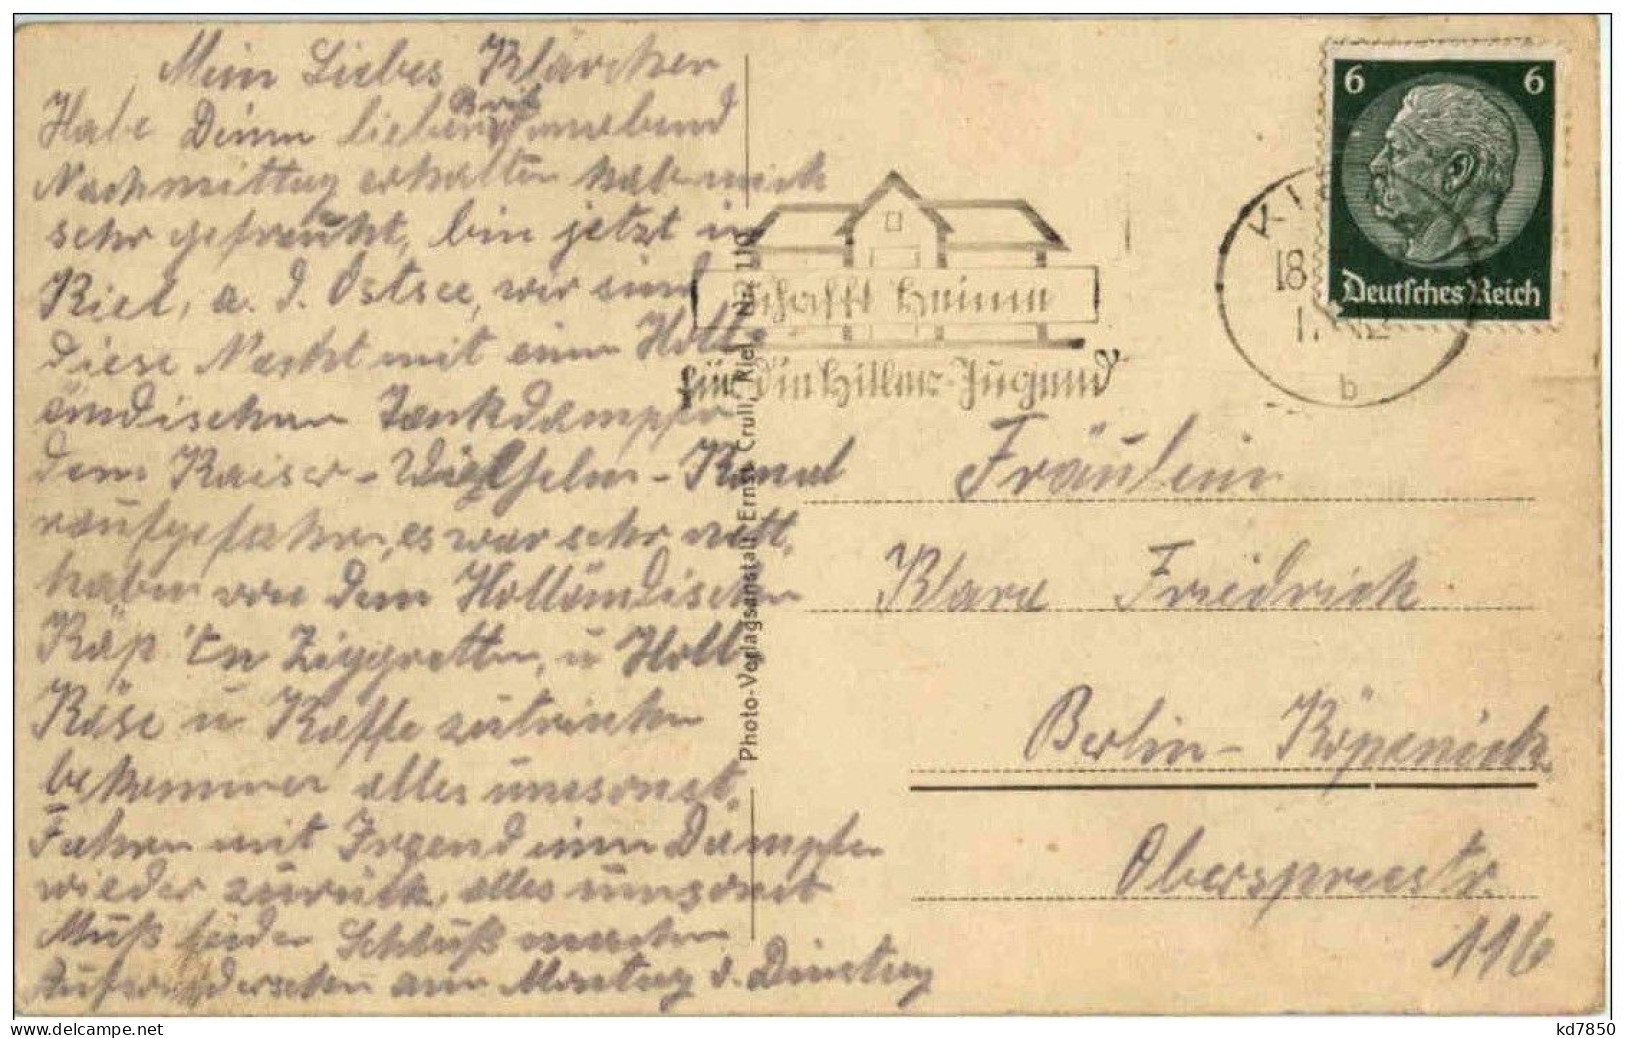 Mein Liebes Klärchen
Habe Deinen lieben Brief Sonnabend
Nachmittag erhalten habe mich
sehr gefreuht, bin jetzt in
Kiel, a. d. Ostsee, wir sind
diese Nacht mit einen Holl-
ändischen Tankdampfer
dem Kaiser-Wilhelm-Kanal
raufgefahren, es war sehr nett,
haben von dem Holländischen
Käp'tn Ziggretten, u Holl
Käse u Kaffe zutrinken
bekommen alles umsonst,
Fahren mit Irgend einen Dampfer
wieder zurück, alles umsonst
Muß leider Schluß machen
Aufwiedersehen am Montag o. Dienstag
Photo-Verlagsanstalt Ernst Crull, Kiel
Schafft Heime
für die Hitler-Jugend
6 6
Deutsches Reich
18
b
Fräulein
Klara Friedrich
Berlin-Köpenick
Oberspreestr.
116
kd7850